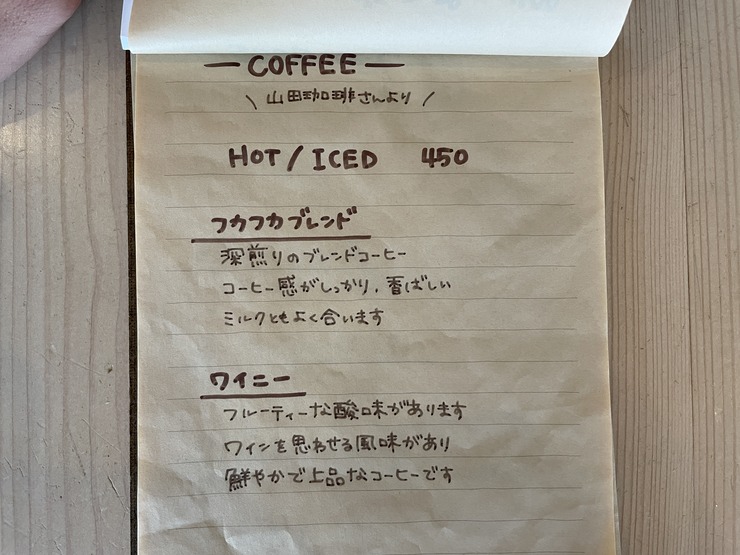 — COFFEE —
\ 山田珈琲さんより /
HOT / ICED 450
フカフカブレンド
深煎りのブレンドコーヒー
コーヒー感がしっかり、香ばしい
ミルクともよく合います
ワイニー
フルーティーな酸味があります
ワインを思わせる風味があり
鮮やかで上品なコーヒーです